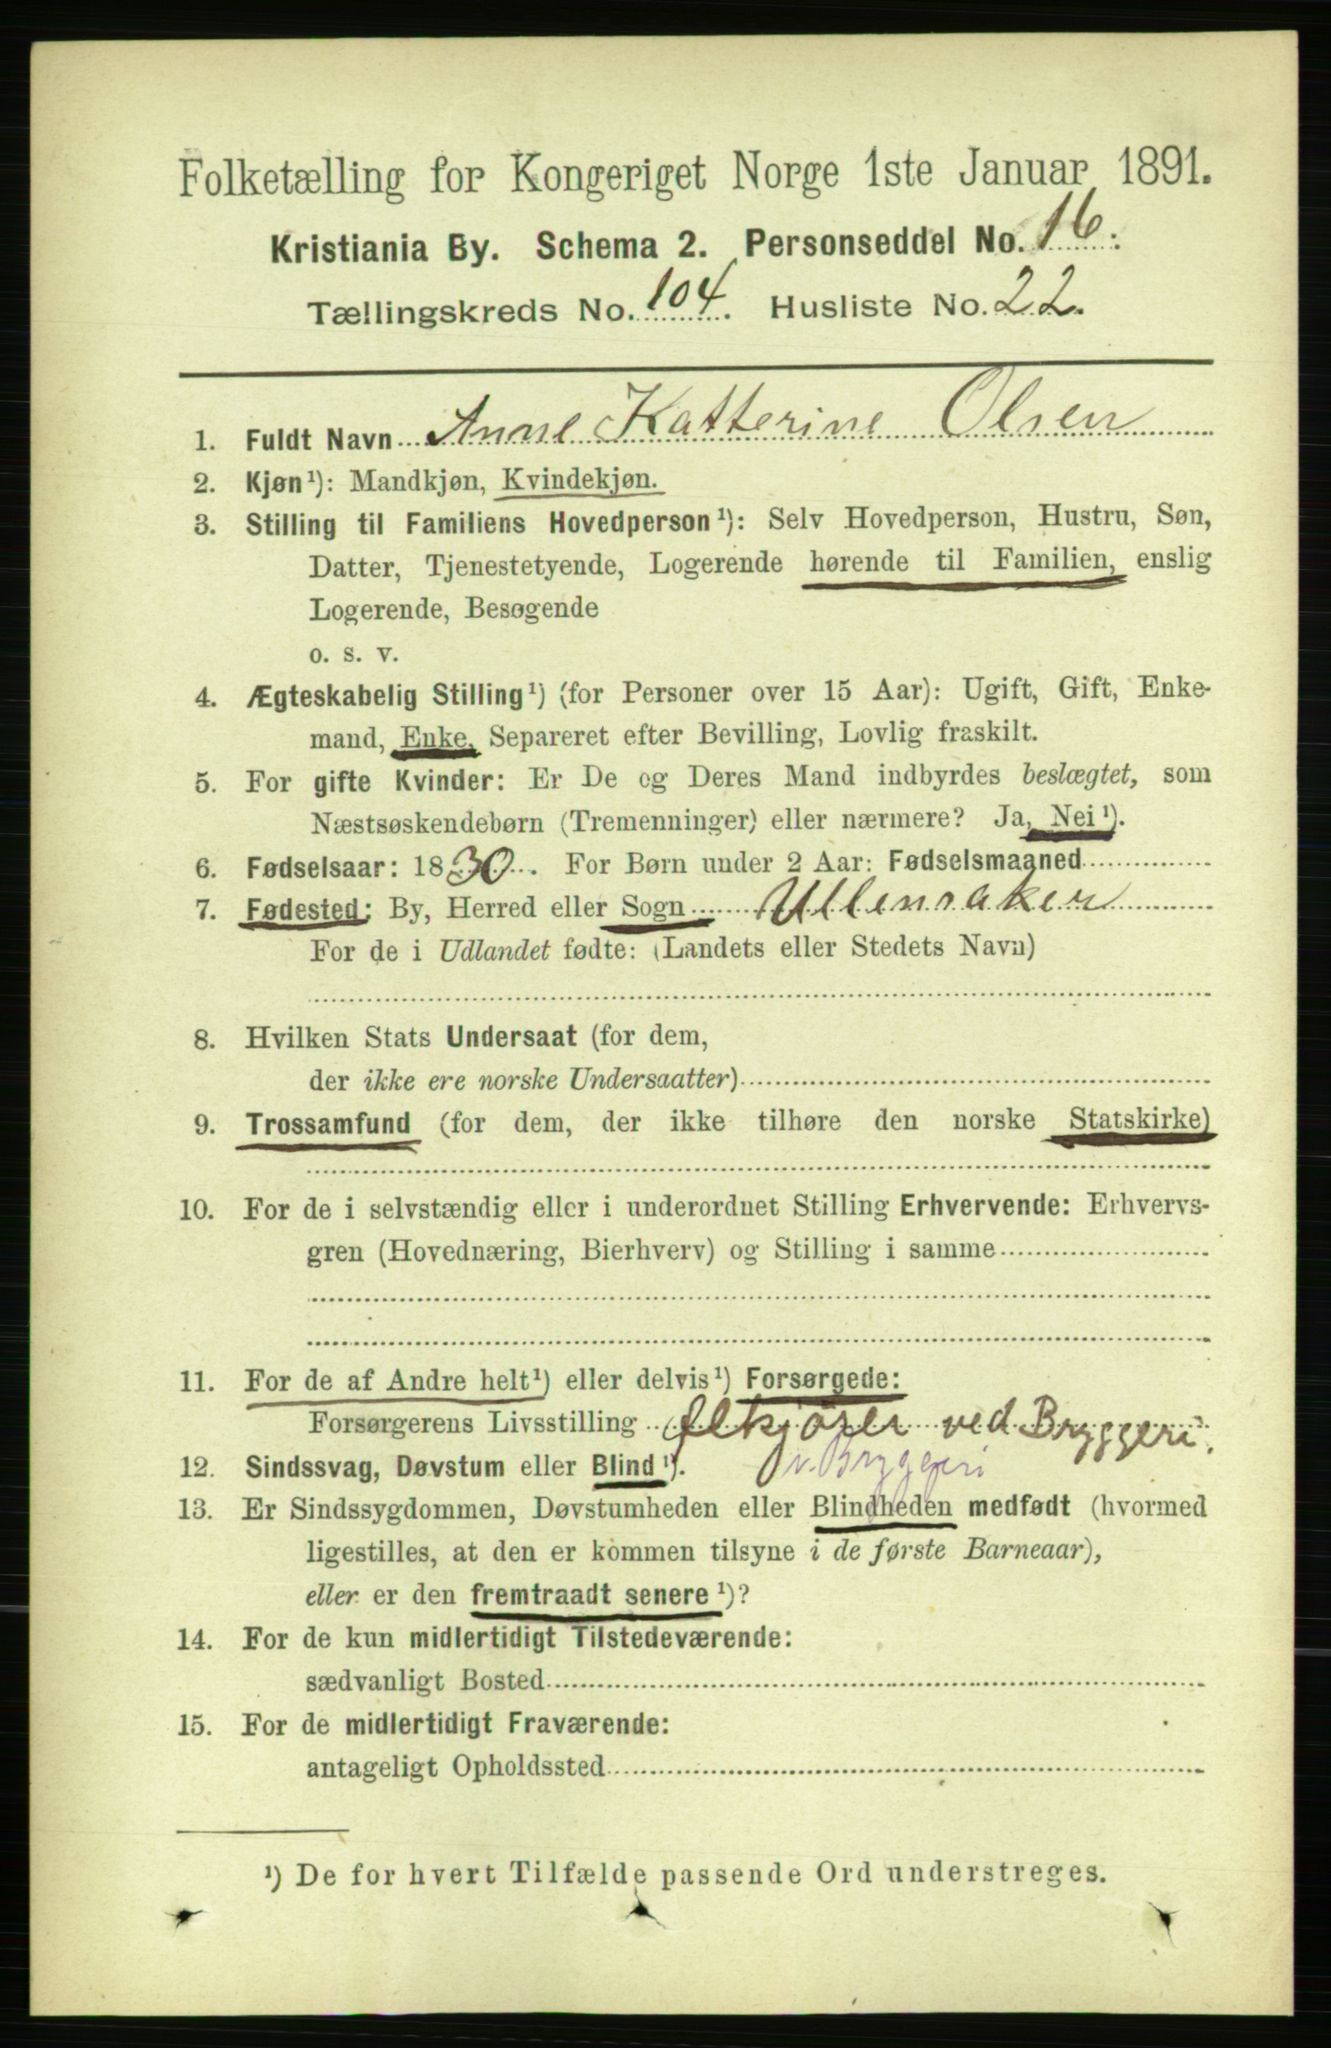 Folketælling for Kongeriget Norge 1ste Januar 1891.
Kristiania By. Schema 2. Personseddel No. 16.
Tællingskreds No. 104. Husliste No. 22.
1. Fuldt Navn Anne Katterine Olsen
2. Kjøn¹): Mandkjøn, Kvindekjøn.
3. Stilling til Familiens Hovedperson¹): Selv Hovedperson, Hustru, Søn,
Datter, Tjenestetyende, Logerende hørende til Familien, enslig
Logerende, Besøgende
o. s. v.
4. Ægteskabelig Stilling¹) (for Personer over 15 Aar): Ugift, Gift, Enke-
mand, Enke, Separeret efter Bevilling, Lovlig fraskilt.
5. For gifte Kvinder: Er De og Deres Mand indbyrdes beslægtet, som
Næstsøskendebørn (Tremenninger) eller nærmere? Ja, Nei¹).
6. Fødselsaar: 1830. For Børn under 2 Aar: Fødselsmaaned
7. Fødested: By, Herred eller Sogn Ullensaker
For de i Udlandet fødte: (Landets eller Stedets Navn)
8. Hvilken Stats Undersaat (for dem,
der ikke ere norske Undersaatter)
9. Trossamfund (for dem, der ikke tilhøre den norske Statskirke)
10. For de i selvstændig eller i underordnet Stilling Erhvervende: Erhvervs-
gren (Hovednæring, Bierhverv) og Stilling i samme
11. For de af Andre helt¹) eller delvis¹) Forsørgede:
Forsørgerens Livsstilling Ølkjører ved Bryggeri.
12. Sindssvag, Døvstum eller Blind¹). v. Bryggeri
13. Er Sindssygdommen, Døvstumheden eller Blindheden medfødt (hvormed
ligestilles, at den er kommen tilsyne i de første Barneaar),
eller er den fremtraadt senere¹)?
14. For de kun midlertidigt Tilstedeværende:
sædvanligt Bosted
15. For de midlertidigt Fraværende:
antageligt Opholdssted
¹) De for hvert Tilfælde passende Ord understreges.